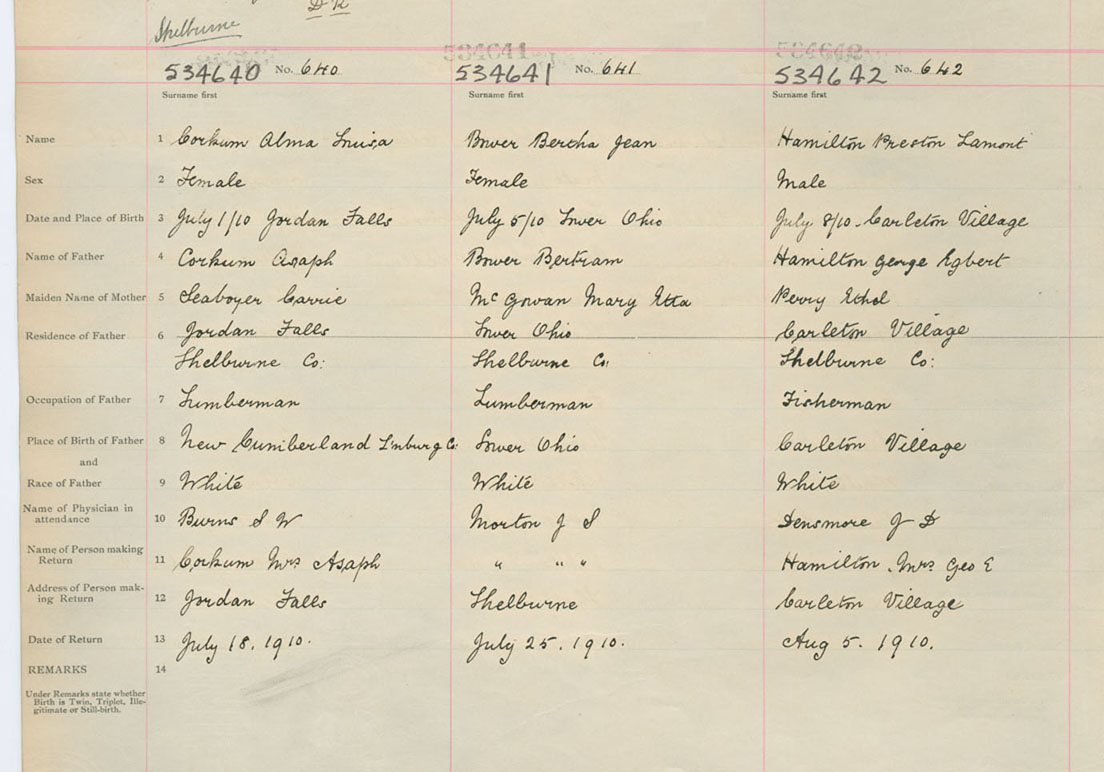 D R
Shelburne
534640 No. 640 534641 No. 641 534642 No. 642
Surname first Surname first Surname first
Name 1 Corkum Alma Louisa Bower Bertha Jean Hamilton Preston Lamont
Sex 2 Female Female Male
Date and Place of Birth 3 July 1/10 Jordan Falls July 5/10 Lower Ohio July 8/10. Carleton Village
Name of Father 4 Corkum Asaph Bower Bertram Hamilton George Egbert
Maiden Name of Mother 5 Seaboyer Carrie McGowan Mary Etta Perry Ethel
Residence of Father 6 Jordan Falls Lower Ohio Carleton Village
Shelburne Co: Shelburne Co: Shelburne Co:
Occupation of Father 7 Lumberman Lumberman Fisherman
Place of Birth of Father 8 New Cumberland L'nburg Co: Lower Ohio Carleton Village
and
Race of Father 9 White White White
Name of Physician in
attendance 10 Burns S W Morton J S Densmore J D
Name of Person making
Return 11 Corkum Mrs Asaph " " " Hamilton Mrs Geo E
Address of Person mak-
ing Return 12 Jordan Falls Shelburne Carleton Village
Date of Return 13 July 18. 1910. July 25. 1910. Aug 5. 1910.
REMARKS 14
Under Remarks state whether
Birth is Twin, Triplet, Ille-
gitimate or Still-birth.